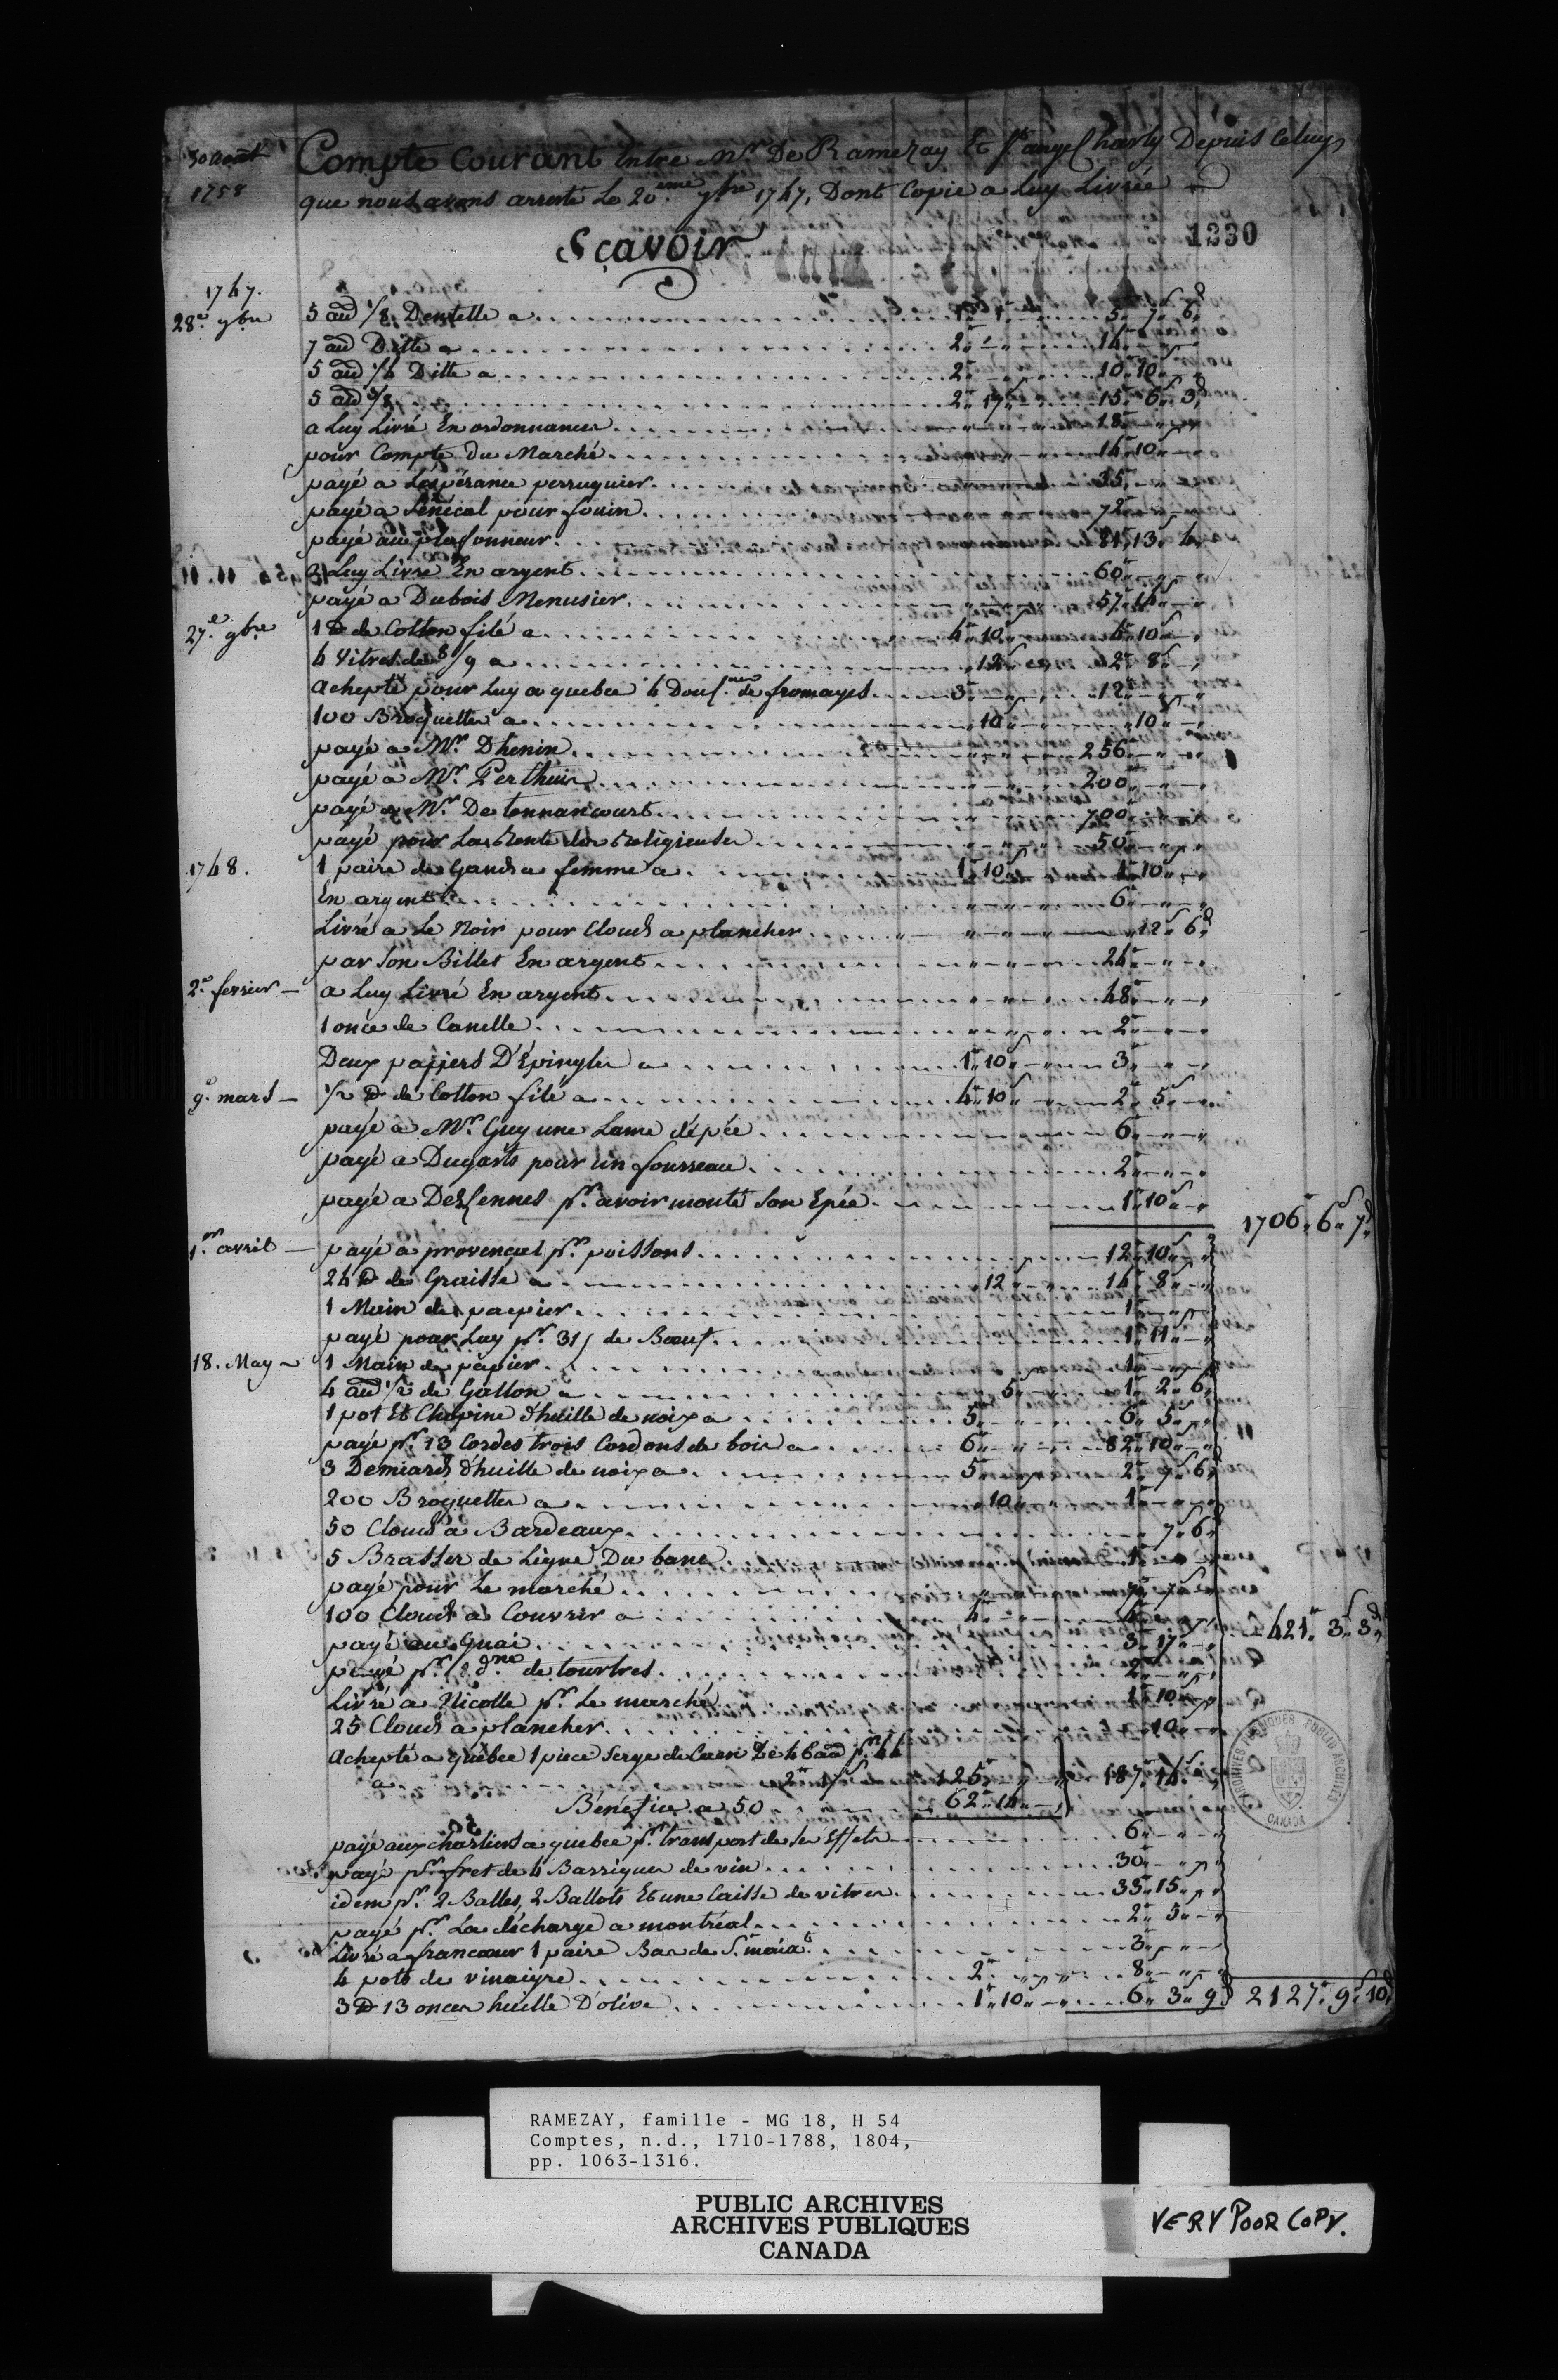 30 Aoust
1758
Compte Courant Entre Mr. De Ramezay Et St. ange Charly Depuis Celuy
que nous avons arresté Le 20.eme 9bre 1747, Dont Copie a Luy Livrée
1330
Sçavoir
1747.
28.e 9bre 5 aud 1/8 Dentelle a 1" 1" 5" 7s 6d
7 aud Ditte a 2" " 14"
5 aud 1/4 Ditte a 2" 10" 10s
5 aud 3/8 2" 17s 15" 6s 3d
a Luy Livré En ordonnances 18"
pour Compte Du Marché 14" 10s
payé a Lespérance perruquier 35"
payé a Senécal pour fouin 72"
payé au plafonneur 81" 13" 4
a Luy Livré En argent 60"
payé a Dubois Menusier 57" 14"
27.e 9bre 1 lb de Cotton filé a 4" 10s 4" 10s
4 Vitres de 8/9 a 12s 2" 8s
achepté pour Luy a quebec 4 Douz.nes de fromages 3" 12"
100 Broquettes a 10" 10"
payé a Mr. Dhenin 256"
payé a Mr. Perthuis 200"
payé a Mr. De tonnancourt 700"
payé pour La Rente des Religieuses 50"
1748. 1 paire de Gands a femme a 1" 10s 1" 10"
En argent 6"
Livré a Le Noir pour Clouds a plancher 12s 6d
par Son Billet En argent 24"
2.e fevrier a Luy Livré En argent 48"
1 once de Canelle 2"
Deux papiers D'Epingles a 1" 10s 3"
9.e mars 1/2 lb de Cotton filé a 4" 10s 2" 5s
payé a Mr. Guy une Lame dépée 6"
payé a Dugarts pour un fourreau 2"
payé a pr. avoir monté Son Epée 1" 10s
1706" 6s 7d
1.er avril payé a provençal pr. poissons 12" 10s
24 lb de Graisse a 12 14" 8"
1 Main de papier 1"
payé pour Luy pr. 31s de Boeuf 1" 11s
18. May 1 Main de papier 1"
4 aud 1/2 de Gallon a 5" 1" 2" 6
1 pot Et Chopine d'huille de noix a 5" 6" 5s
payé pr. 13 Cordes trois Cordons de bois a 6" 82" 10"
3 Demiards d'huille de noix a 5" 2" 7s 6d
200 Broquettes a 10" 1"
50 Clouds a Bardeaux 7s 6d
5 Brasses de Ligne Du banc 1"
payé pour Le marché 7" 7s
100 Clouds a Couvrir a 4" 4"
payé au Guai 3" 17"
421" 3s 3d
payé pr. de tourtres 2"
Livré a Nicolle pr. Le marché 1" 10s
25 Clouds a plancher 10"
Achepté a québec 1 piece Serge de Caen De 46 aud pr. 44
a 2" 17s 125" 187" 14s
Bénéfice a 50 62" 14"
payé aux chartiers a quebec pr. transport de Ses Effets 6"
payé pr. fret de 4 Barriques de vin 30"
idem pr. 2 Balles, 2 Ballots Et une Caisse de vitres 33" 15"
payé pr. La décharge a montréal 2" 5"
Livré a francoeur 1 paire Bas de 3"
4 pots de vinaigre 2" 8"
3 lb 13 onces huille D'olive 1" 10" 6" 3" 9 2127" 9s 10d
ARCHIVES PUBLIQUES PUBLIC ARCHIVES
CANADA
RAMEZAY, famille - MG 18, H 54
Comptes, n.d., 1710-1788, 1804,
pp. 1063-1316.
PUBLIC ARCHIVES
ARCHIVES PUBLIQUES
CANADA
VERY POOR COPY.